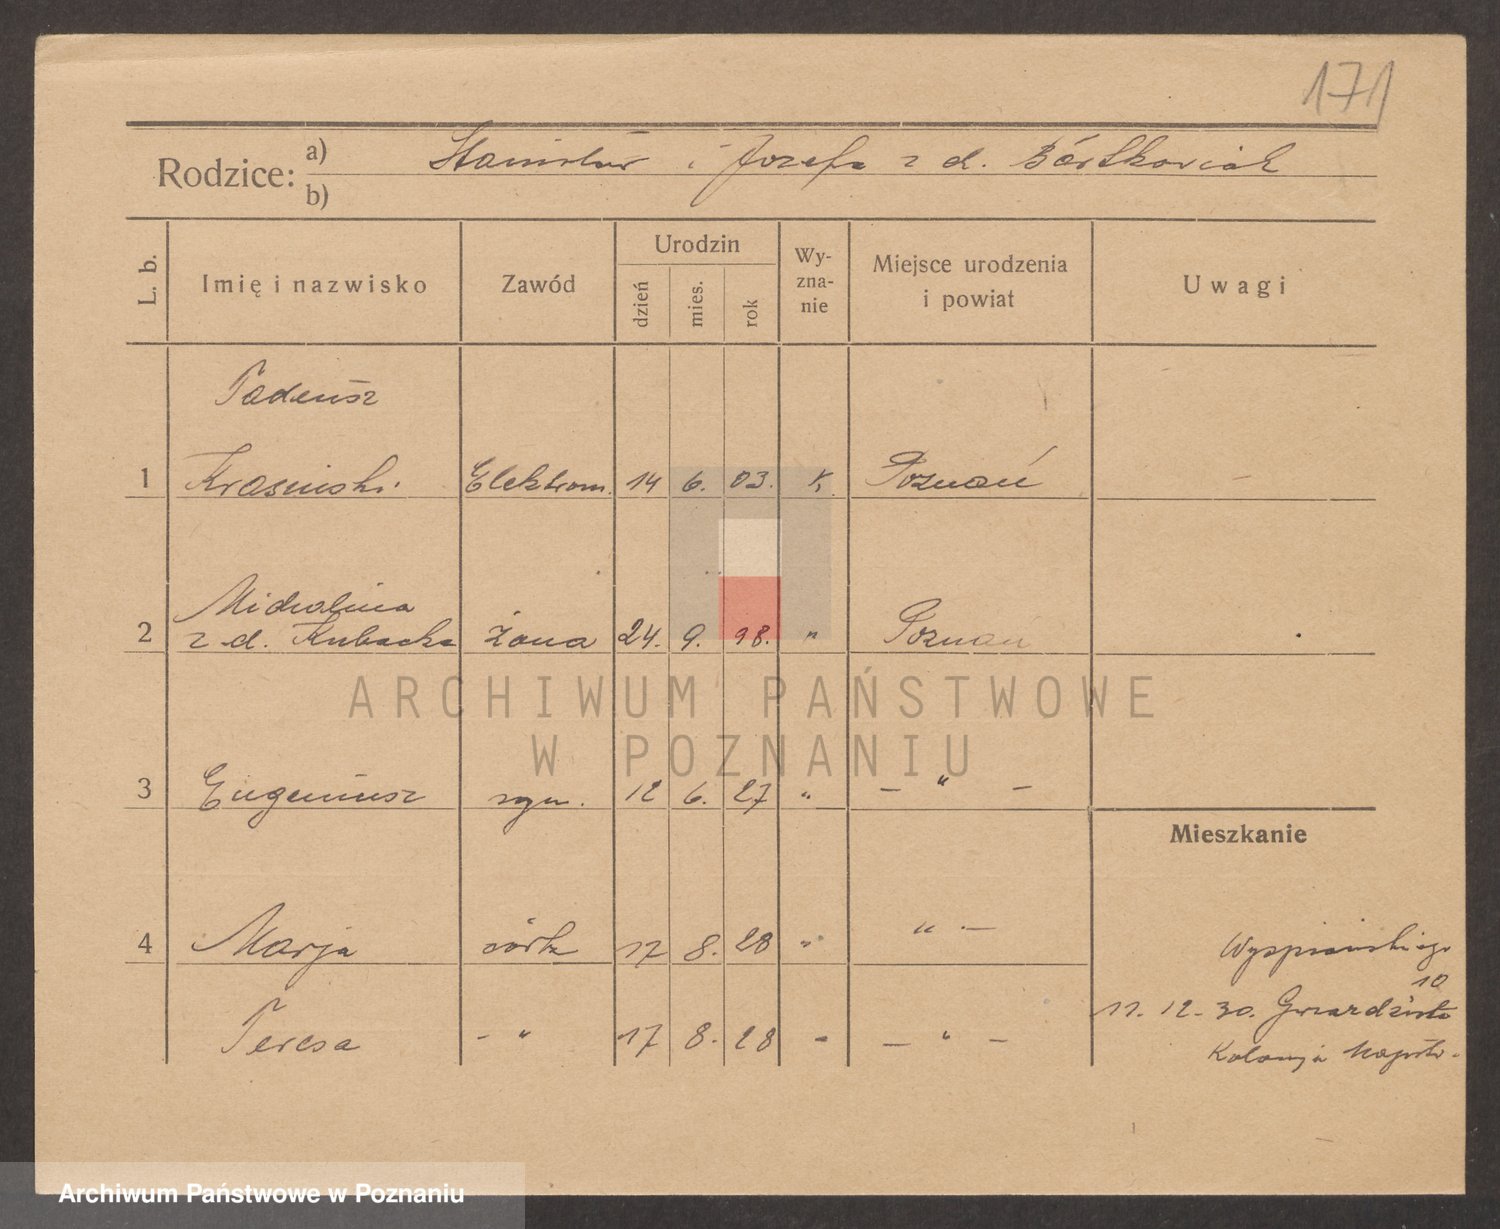 171
Rodzice: a) Stanisław i Józefa z d. Bartkowiak
b)
L. b. Imię i nazwisko Zawód Urodzin dzień mies. rok Wy-zna-nie Miejsce urodzenia i powiat Uwagi
Tadeusz
1 Krasiński Elektrom. 14 6. 03. K. Poznań
Michalina
2 z d. Kubacka żona 24. 9. 98. " Poznań
ARCHIWUM PAŃSTWOWE
W POZNANIU
3 Eugeniusz syn. 12 6. 27 " — " —
Mieszkanie
4 Marja córka 17 8. 28 " " —
Wyspiańskiego
10
11. 12. 30. Gwiaździsta
Teresa - " 17 8. 28 - — " —
Kolonja
Archiwum Państwowe w Poznaniu